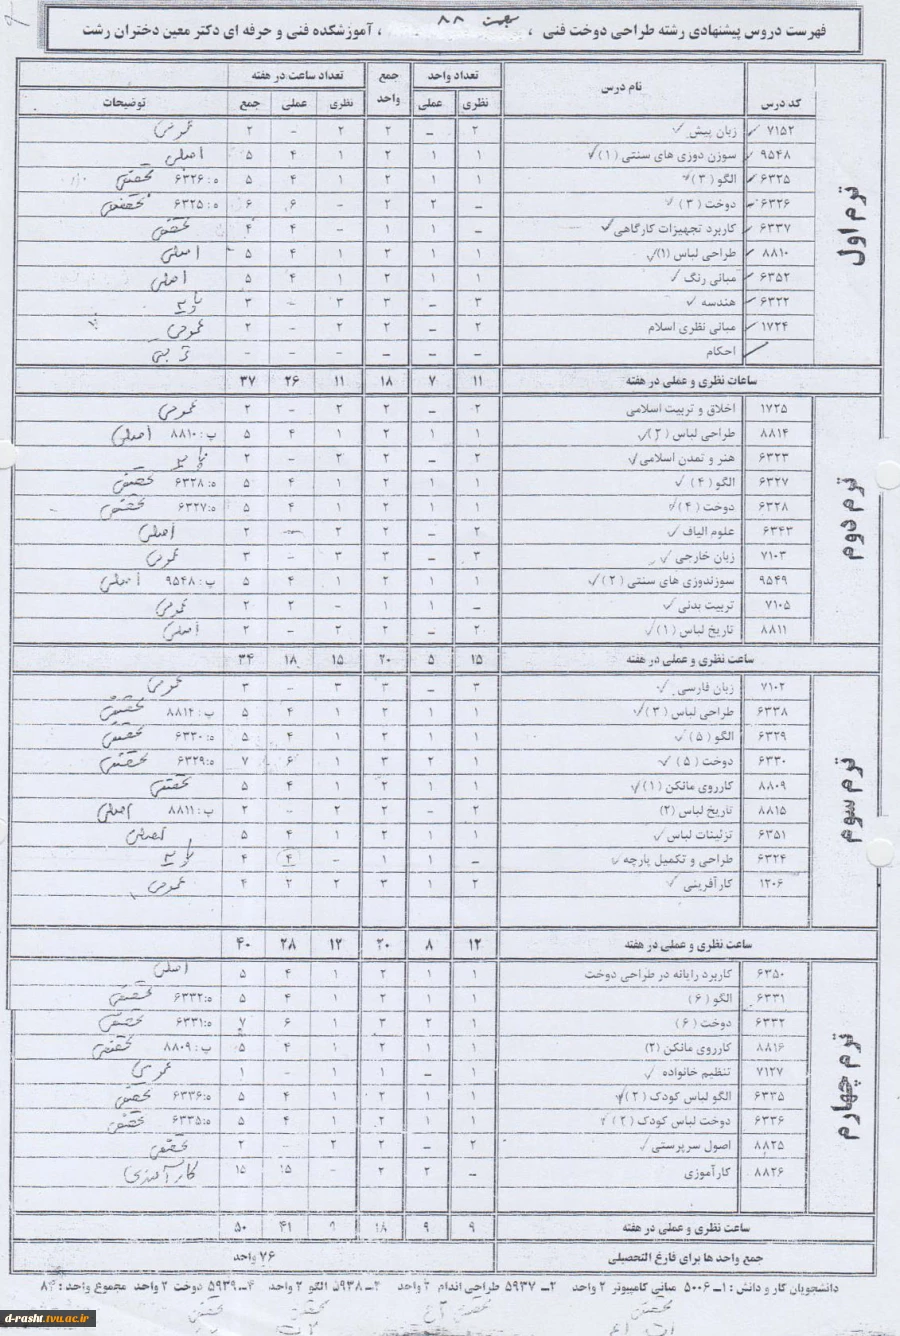 بهمن ۸۸
فهرست دروس پیشنهادی رشته طراحی دوخت فنی ، آموزشکده فنی و حرفه ای دکتر معین دختران رشت
کد درس نام درس تعداد واحد جمع واحد تعداد ساعت در هفته توضیحات
نظری عملی نظری عملی جمع
ترم اول
۷۱۵۲ زبان پیش ۲ – ۲ ۲ – ۲ عمومی
۹۵۴۸ سوزن دوزی های سنتی (۱) ۱ ۱ ۲ ۱ ۴ ۵ اصلی
۶۳۲۵ الگو (۳) ۱ ۱ ۲ ۱ ۴ ۵ ه:۶۳۲۶ تخصصی
۶۳۲۶ دوخت (۳) – ۲ ۲ – ۶ ۶ ه:۶۳۲۵ تخصصی
۶۳۳۷ کاربرد تجهیزات کارگاهی – ۱ ۱ – ۴ ۴ تخصصی
۸۸۱۰ طراحی لباس (۱) ۱ ۱ ۲ ۱ ۴ ۵ اصلی
۶۳۵۲ مبانی رنگ ۱ ۱ ۲ ۱ ۴ ۵ اصلی
۶۳۲۲ هندسه ۳ – ۳ ۳ – ۳ پایه
۱۷۲۴ مبانی نظری اسلام ۲ – ۲ ۲ – ۲ عمومی
احکام – – – – – –
ساعات نظری و عملی در هفته ۱۱ ۷ ۱۸ ۱۱ ۲۶ ۳۷
ترم دوم
۱۷۲۵ اخلاق و تربیت اسلامی ۲ – ۲ ۲ – ۲ عمومی
۸۸۱۴ طراحی لباس (۲) ۱ ۱ ۲ ۱ ۴ ۵ پ:۸۸۱۰ اصلی
۶۳۲۳ هنر و تمدن اسلامی ۲ – ۲ ۲ – ۲ پایه
۶۳۲۷ الگو (۴) ۱ ۱ ۲ ۱ ۴ ۵ ه:۶۳۲۸ تخصصی
۶۳۲۸ دوخت (۴) ۱ ۱ ۲ ۱ ۴ ۵ ه:۶۳۲۷ تخصصی
۶۳۴۳ علوم الیاف ۲ – ۲ ۲ – ۲ اصلی
۷۱۰۳ زبان خارجی ۳ – ۳ ۳ – ۳ عمومی
۹۵۴۹ سوزندوزی های سنتی (۲) ۱ ۱ ۲ ۱ ۴ ۵ پ:۹۵۴۸ اصلی
۷۱۰۵ تربیت بدنی – ۱ ۱ – ۲ ۲ عمومی
۸۸۱۱ تاریخ لباس (۱) ۲ – ۲ ۲ – ۲ اصلی
ساعت نظری و عملی در هفته ۱۵ ۵ ۲۰ ۱۵ ۱۸ ۳۴
ترم سوم
۷۱۰۲ زبان فارسی ۳ – ۳ ۳ – ۳ عمومی
۶۳۳۸ طراحی لباس (۳) ۱ ۱ ۲ ۱ ۴ ۵ پ:۸۸۱۴ تخصصی
۶۳۲۹ الگو (۵) ۱ ۱ ۲ ۱ ۴ ۵ ه:۶۳۳۰ تخصصی
۶۳۳۰ دوخت (۵) ۱ ۲ ۳ ۱ ۶ ۷ ه:۶۳۲۹ تخصصی
۸۸۰۹ کارروی مانکن (۱) ۱ ۱ ۲ ۱ ۴ ۵ تخصصی
۸۸۱۵ تاریخ لباس (۲) ۲ – ۲ ۲ – ۲ پ:۸۸۱۱ اصلی
۶۳۵۱ تزئینات لباس ۱ ۱ ۲ ۱ ۴ ۵ اصلی
۶۳۲۴ طراحی و تکمیل پارچه – ۱ ۱ – ۴ ۴ پایه
۱۲۰۶ کارآفرینی ۲ ۱ ۳ ۲ ۲ ۴ عمومی
ساعت نظری و عملی در هفته ۱۲ ۸ ۲۰ ۱۲ ۲۸ ۴۰
ترم چهارم
۶۳۵۰ کاربرد رایانه در طراحی دوخت ۱ ۱ ۲ ۱ ۴ ۵ اصلی
۶۳۳۱ الگو (۶) ۱ ۱ ۲ ۱ ۴ ۵ ه:۶۳۳۲ تخصصی
۶۳۳۲ دوخت (۶) ۱ ۲ ۳ ۱ ۶ ۷ ه:۶۳۳۱ تخصصی
۸۸۱۶ کارروی مانکن (۲) ۱ ۱ ۲ ۱ ۴ ۵ پ:۸۸۰۹ تخصصی
۷۱۲۷ تنظیم خانواده ۱ – ۱ ۱ – ۱ عمومی
۶۳۳۵ الگو لباس کودک (۲) ۱ ۱ ۲ ۱ ۴ ۵ ه:۶۳۳۶ تخصصی
۶۳۳۶ دوخت لباس کودک (۲) ۱ ۱ ۲ ۱ ۴ ۵ ه:۶۳۳۵ تخصصی
۸۸۲۵ اصول سرپرستی ۲ – ۲ ۲ – ۲ تخصصی
۸۸۲۶ کارآموزی – ۲ ۲ – ۱۵ ۱۵ کارآموزی
ساعت نظری و عملی در هفته ۹ ۹ ۱۸ ۹ ۴۱ ۵۰
جمع واحد ها برای فارغ التحصیلی ۷۶ واحد
دانشجویان کار و دانش : ۱ـ ۵۰۰۶ مبانی کامپیوتر ۲ واحد ۲ـ ۵۹۳۷ طراحی اندام ۲ واحد ۳ـ ۵۹۳۸ الگو ۲ واحد ۴ـ ۵۹۳۹ دوخت ۲ واحد مجموع واحد : ۸۴
d-rasht.tvu.ac.ir